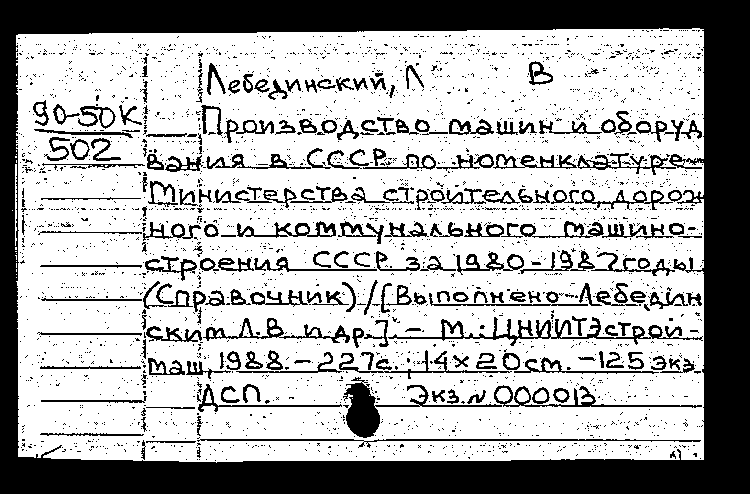 Лебединский, Л В
90-50К
502
Производство машин и оборуд
вания в СССР по номенклатуре
Министерства строительного, дорож
ного и коммунального машино-
строения СССР за 1980-1987 годы
(Справочник) / [Выполнено Лебедин
ским Л.В и др.]. - М.: ЦНИИТЭстрой-
маш, 1988. - 227с.; 14×20 см. - 125 экз.
ДСП. Экз.№ 000013